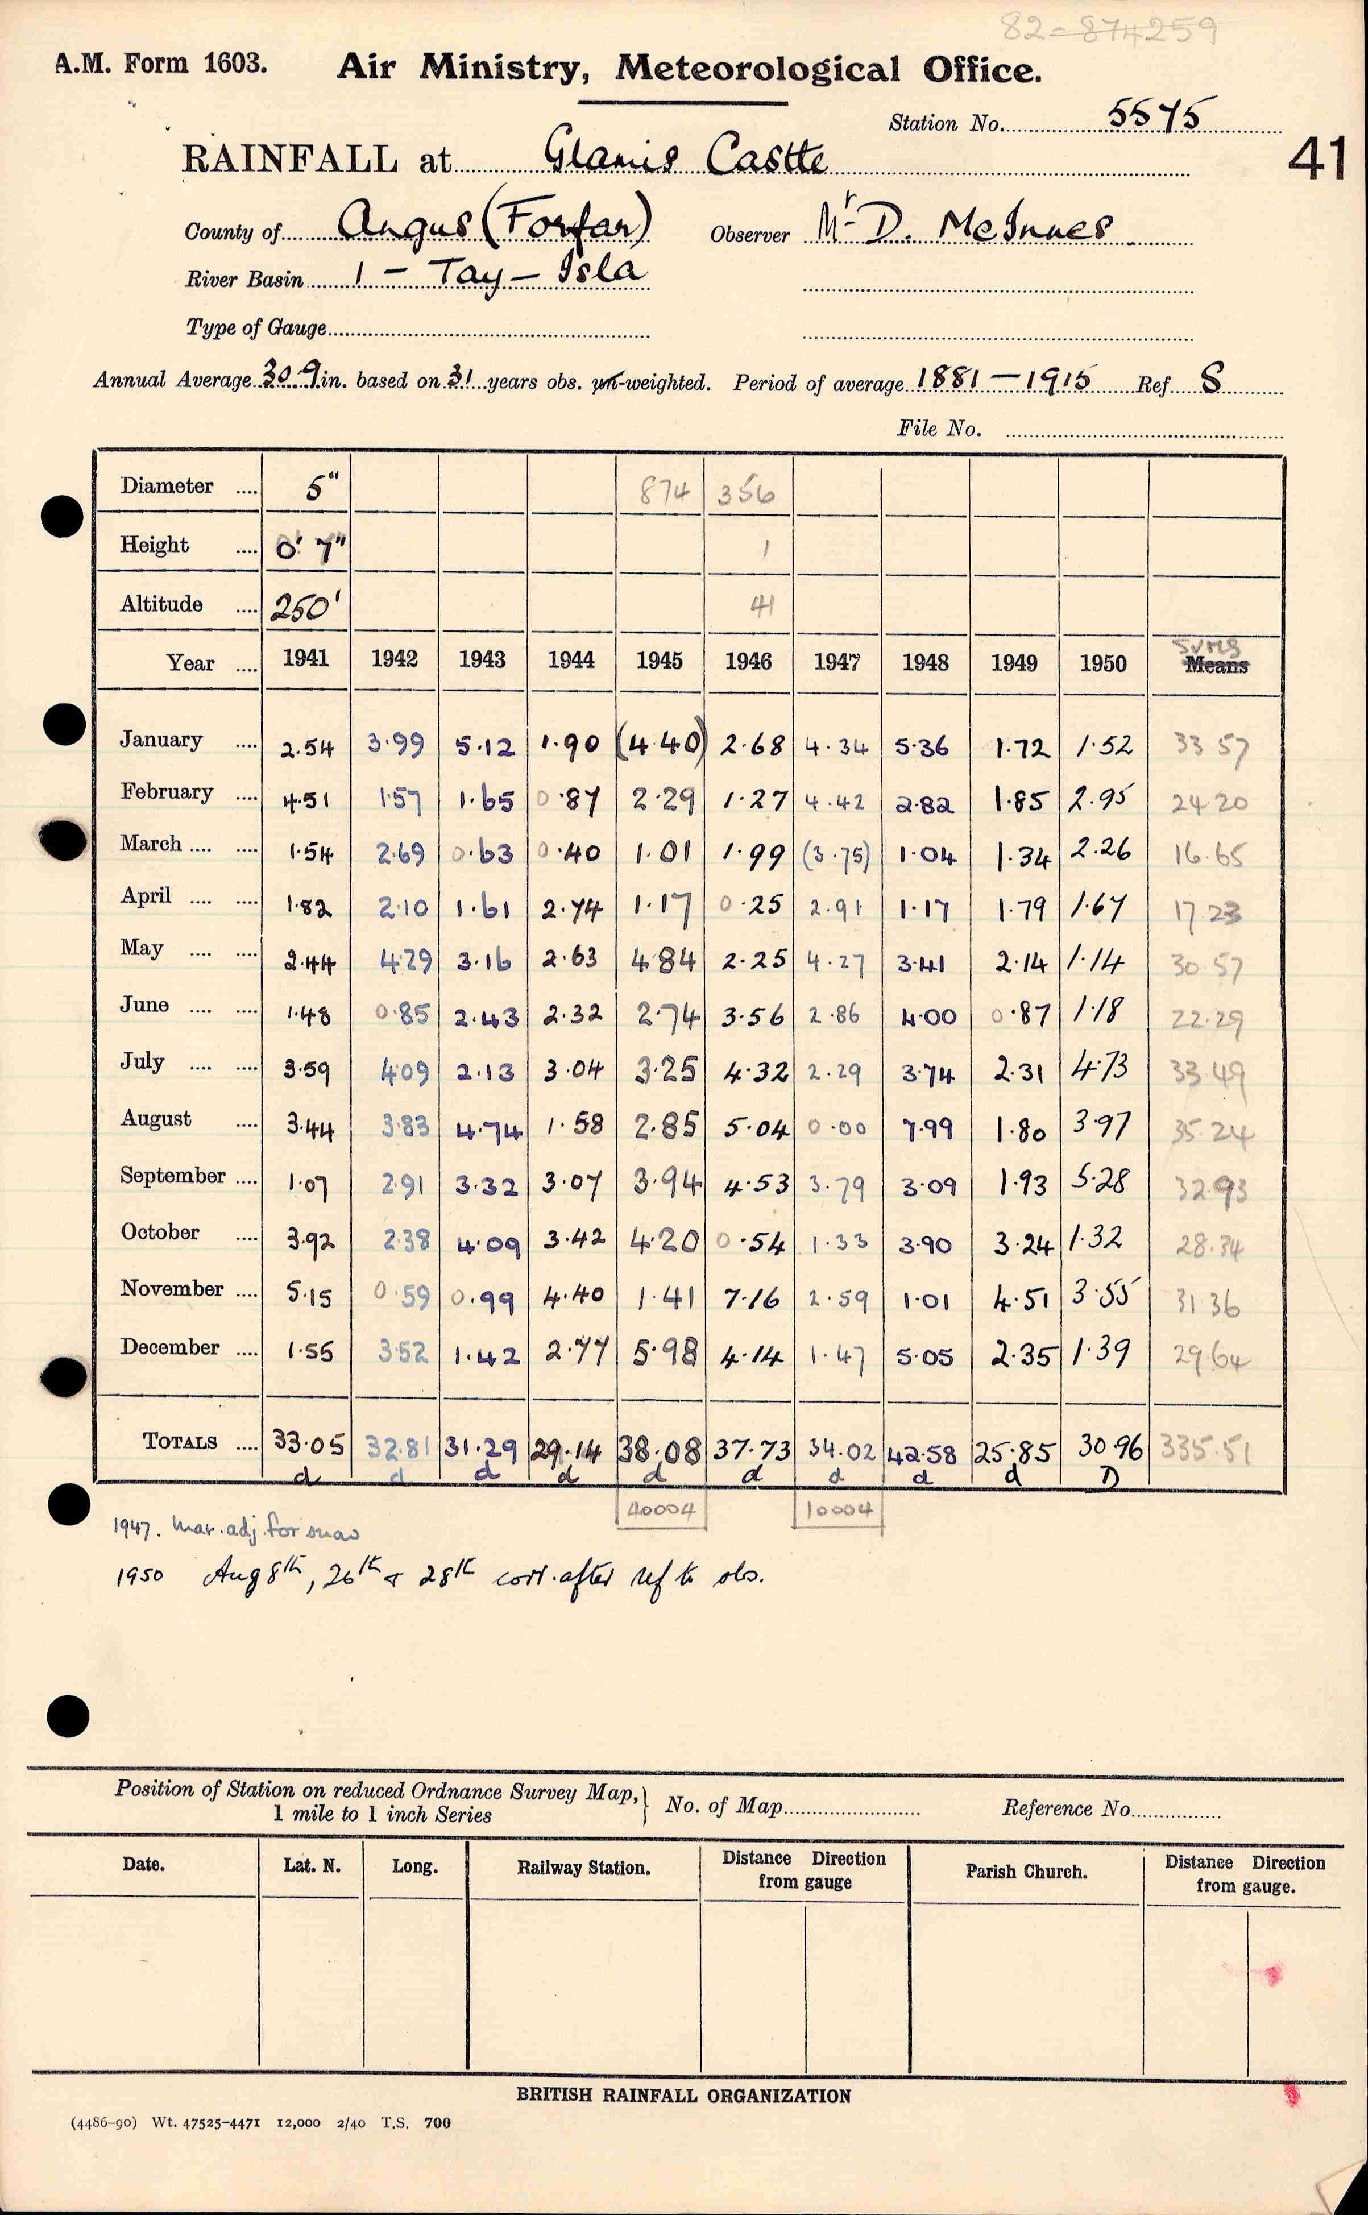 82-874259
A.M. Form 1603. Air Ministry, Meteorological Office.
Station No. 5575
41
RAINFALL at Glamis Castle
County of Angus (Forfar) Observer Mr D. McInnes
River Basin 1 - Tay - Isla
Type of Gauge
Annual Average 30.9 in. based on 31 years obs. un-weighted. Period of average 1881-1915 Ref S
File No.
Diameter .... 5" 874 356
Height .... 0' 7" 1
Altitude .... 250' 41
Sums
Year .... 1941 1942 1943 1944 1945 1946 1947 1948 1949 1950 Means
January .... 2.54 3.99 5.12 1.90 (4.40) 2.68 4.34 5.36 1.72 1.52 33 57
February .... 4.51 1.57 1.65 0.87 2.29 1.27 4.42 2.82 1.85 2.95 24 20
March .... .... 1.54 2.69 0.63 0.40 1.01 1.99 (3.75) 1.04 1.34 2.26 16.65
April .... .... 1.82 2.10 1.61 2.74 1.17 0.25 2.91 1.17 1.79 1.67 17 23
May .... .... 2.44 4.29 3.16 2.63 4.84 2.25 4.27 3.41 2.14 1.14 30.57
June .... .... 1.48 0.85 2.43 2.32 2.74 3.56 2.86 4.00 0.87 1.18 22.29
July .... .... 3.59 4.09 2.13 3.04 3.25 4.32 2.29 3.74 2.31 4.73 33.49
August .... 3.44 3.83 4.74 1.58 2.85 5.04 0.00 7.99 1.80 3.97 35.24
September .... 1.07 2.91 3.32 3.07 3.94 4.53 3.79 3.09 1.93 5.28 32.93
October .... 3.92 2.38 4.09 3.42 4.20 0.54 1.33 3.90 3.24 1.32 28.34
November .... 5.15 0.59 0.99 4.40 1.41 7.16 2.59 1.01 4.51 3.55 31.36
December .... 1.55 3.52 1.42 2.77 5.98 4.14 1.47 5.05 2.35 1.39 29.64
TOTALS .... 33.05 32.81 31.29 29.14 38.08 37.73 34.02 42.58 25.85 30.96 335.51
d d d d d d d d d D
40004 10004
1947. Mar. adj. for snow
1950 Aug 8th, 26th & 28th corr. after ref to obs.
Position of Station on reduced Ordnance Survey Map, 1 mile to 1 inch Series } No. of Map Reference No.
Date. Lat. N. Long. Railway Station. Distance Direction from gauge Parish Church. Distance Direction from gauge.
BRITISH RAINFALL ORGANIZATION
(4486-90) Wt. 47525-4471 12,000 2/40 T.S. 700